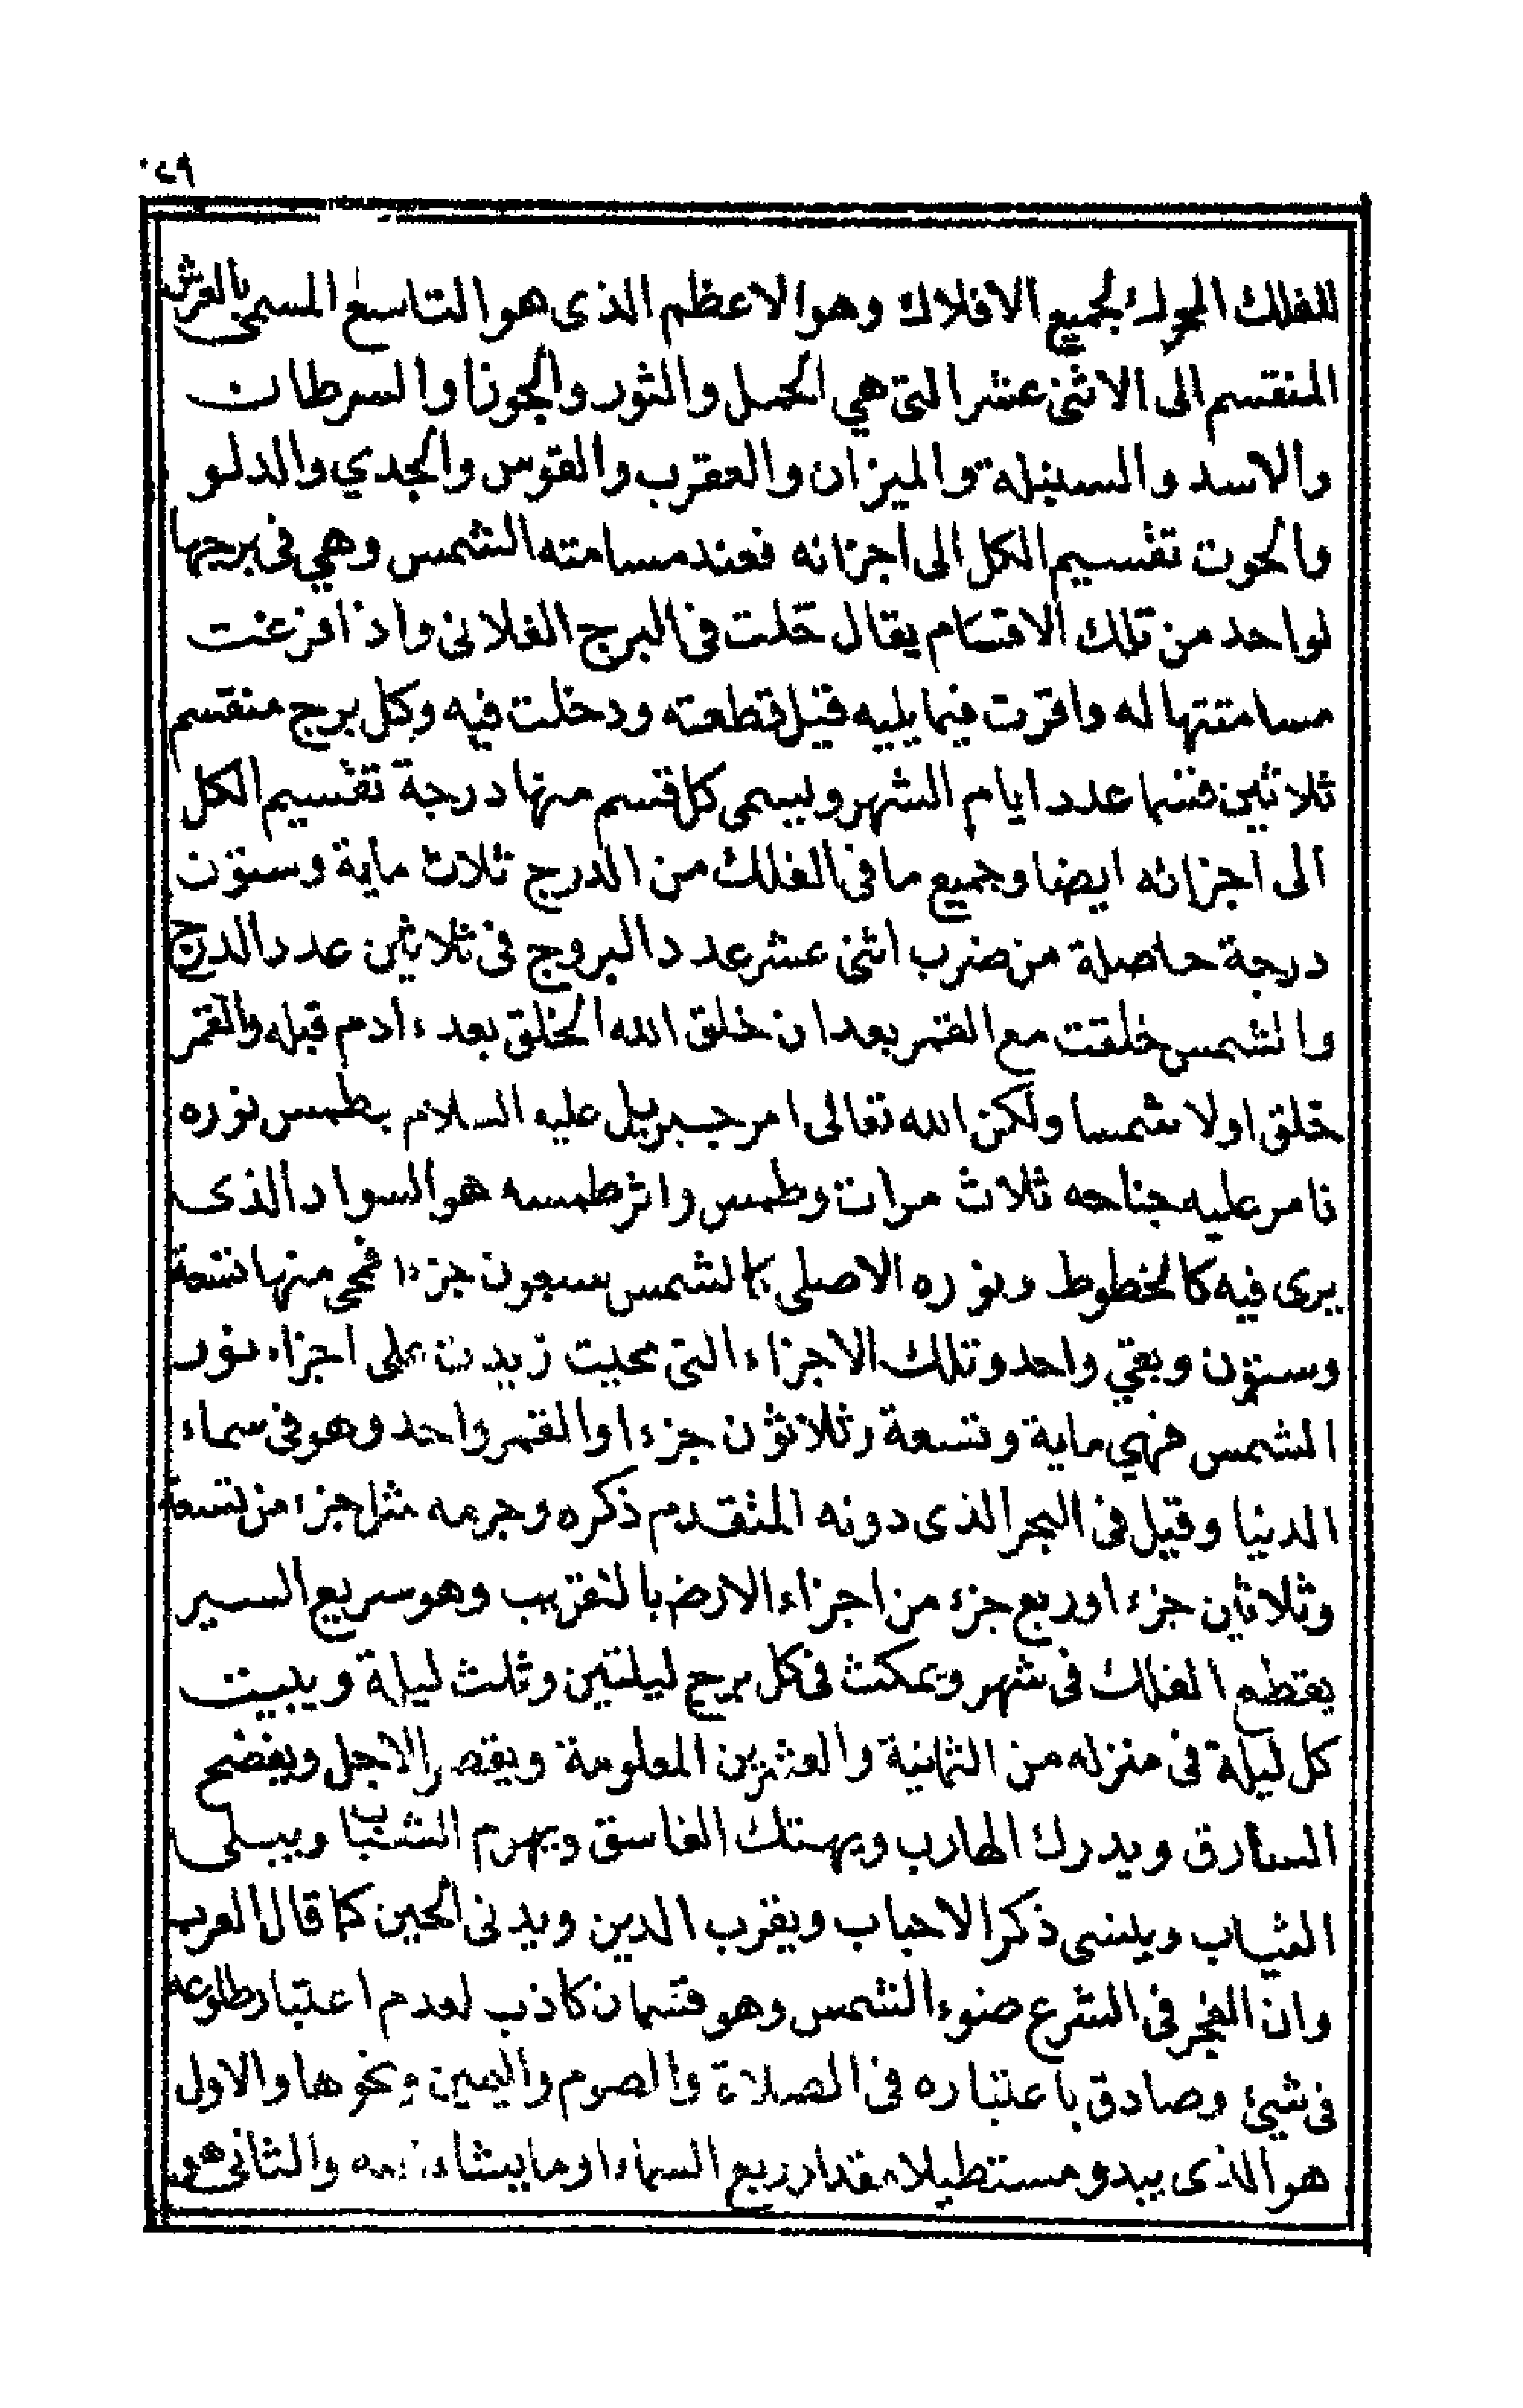 ٢٩
للفلك المحرك لجميع الافلاك وهو الاعظم الذى هو التاسع المسمى بالعرش
المنقسم الى الاثنى عشر التى هي الحمل والثور والجوزا والسرطان
والاسد والسنبلة والميزان والعقرب والقوس والجدي والدلو
والحوت تقسيم الكل الى اجزائه فعند مسامته الشمس وهي فى برجها
لواحد من تلك الاقسام يقال حلت فى البرج الفلانى واذا فرغت
مسامتتها له واقرت فيما يليه قيل قطعته ودخلت فيه وكل برج منقسم
ثلاثين قسما عدد ايام الشهر ويسمى كل قسم منها درجة تقسيم الكل
الى اجزائه ايضا وجميع ما فى الفلك من الدرج ثلاث ماية وستون
درجة حاصلة من ضرب اثنى عشر عدد البروج فى ثلاثين عدد الدرج
والشمس خلقت مع القمر بعد ان خلق الله الخلق بعد ءادم قبله والقمر
خلق اولا شمسا ولكن الله تعالى امر جبريل عليه السلام بطمس نوره
فامر عليه جناحه ثلاث مرات وطمس واثر طمسه هو السواد الذى
يرى فيه كالخطوط ونوره الاصلى كالشمس سبعون جزءا فمحي منها تسعة
وستون وبقي واحد وتلك الاجزاء التى محيت زيدت على اجزاء نور
الشمس فهي ماية وتسعة وثلاثون جزءا والقمر واحد وهو فى سماء
الدنيا وقيل فى البحر الذى دونه المتقدم ذكره وجرمه مثل جزء من تسعة
وثلاثين جزءا وربع جزء من اجزاء الارض بالتقريب وهو سريع السير
يقطع الفلك فى شهر ويمكث فى كل برج ليلتين وثلث ليلة ويبيت
كل ليلة فى منزله من الثمانية والعشرين المعلومة ويقصر الاجل ويفضح
السارق ويدرك الهارب ويهتك الفاسق ويهرم الشباب ويبلى
الثياب وينسى ذكر الاحباب ويقرب الدين ويدنى الحين كما قال العرب
وان الفجر فى الشرع ضوء الشمس وهو قسمان كاذب لعدم اعتبار طلوعه
فى شيئ وصادق باعتباره فى الصلاة والصوم واليمين ونحوها والاول
هو الذى يبدو مستطيلا مقدار ربع السماء او ما يشاء والثانى هو